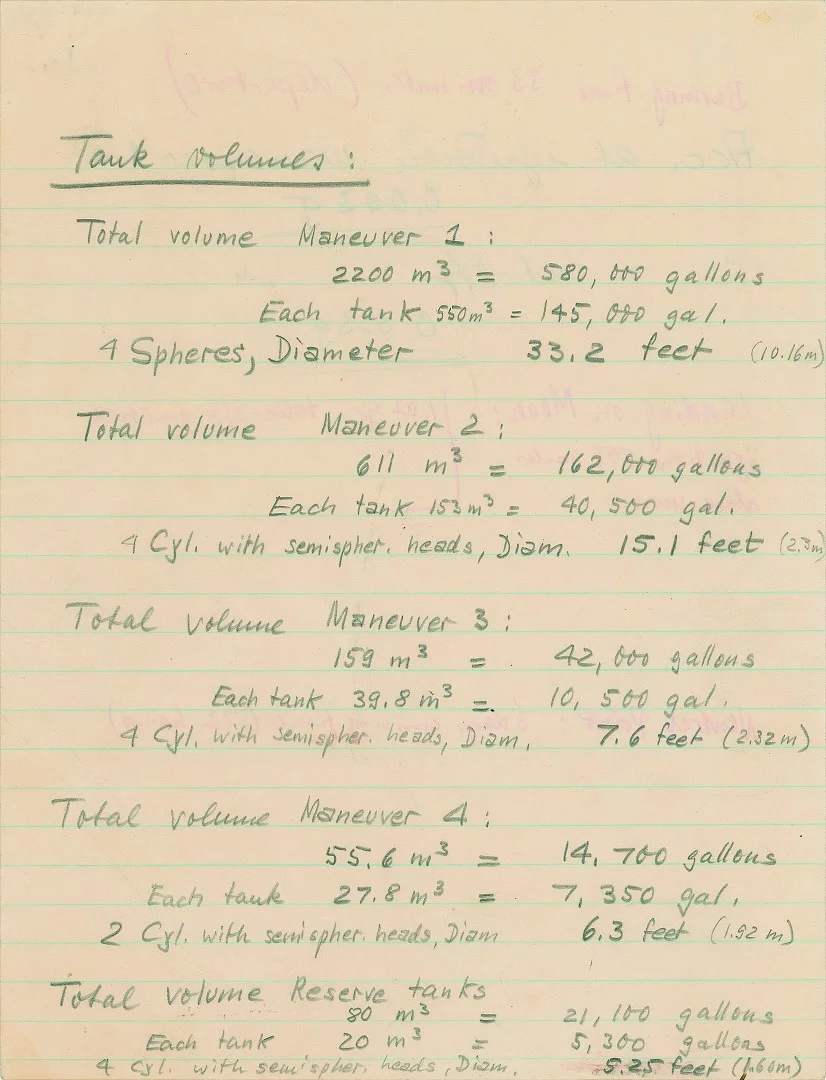 Tank volumes:
Total volume Maneuver 1:
2200 m³ = 580,000 gallons
Each tank 550m³ = 145,000 gal.
4 Spheres, Diameter 33.2 feet (10.16m)
Total volume Maneuver 2:
611 m³ = 162,000 gallons
Each tank 153m³ = 40,500 gal.
4 Cyl. with semispher. heads, Diam. 15.1 feet (2.3m)
Total volume Maneuver 3:
159 m³ = 42,000 gallons
Each tank 39.8 m³ = 10,500 gal.
4 Cyl. with semispher. heads, Diam. 7.6 feet (2.32m)
Total volume Maneuver 4:
55.6 m³ = 14,700 gallons
Each tank 27.8 m³ = 7,350 gal.
2 Cyl. with semispher. heads, Diam 6.3 feet (1.92m)
Total volume Reserve tanks
80 m³ = 21,100 gallons
Each tank 20 m³ = 5,300 gallons
4 Cyl. with semispher. heads, Diam. 5.25 feet (1.60m)